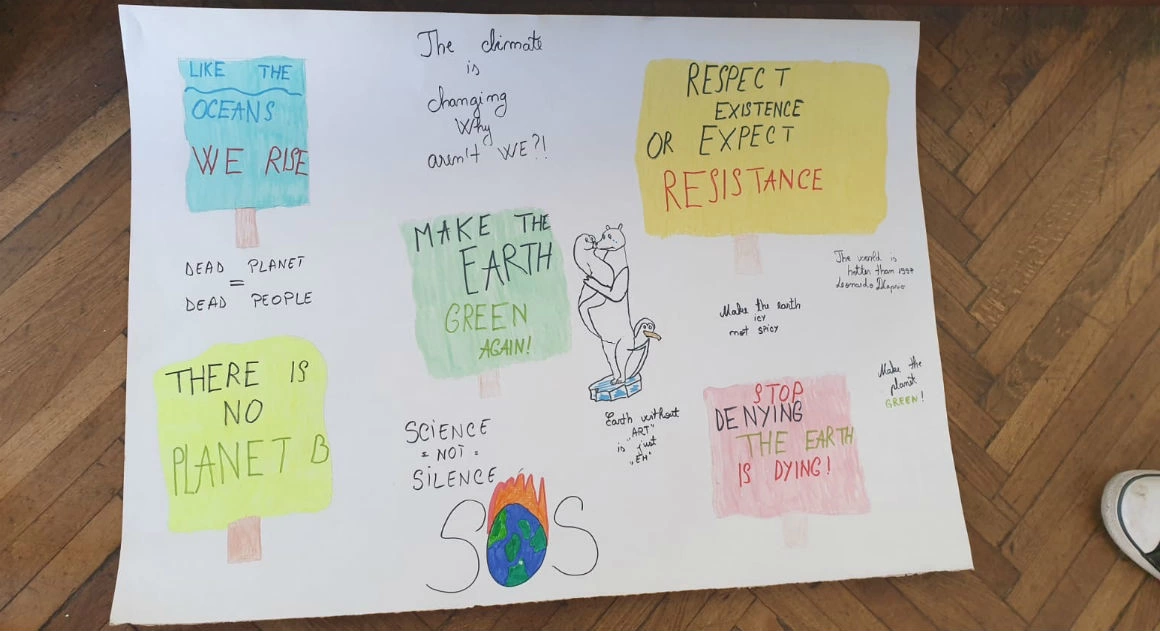 LIKE THE
OCEANS
WE RISE
The climate
is
changing
Why
aren't WE?!
RESPECT
EXISTENCE
OR EXPECT
RESISTANCE
DEAD PLANET
=
DEAD PEOPLE
MAKE THE
EARTH
GREEN
AGAIN!
The world is
hotter than
Leonardo DiCaprio
Make the earth
icy
not spicy
THERE IS
NO
PLANET B
SCIENCE
= NOT =
SILENCE
Earth without
"ART"
is just
"EH"
STOP
DENYING
THE EARTH
IS DYING!
Make the
planet
GREEN!
SOS